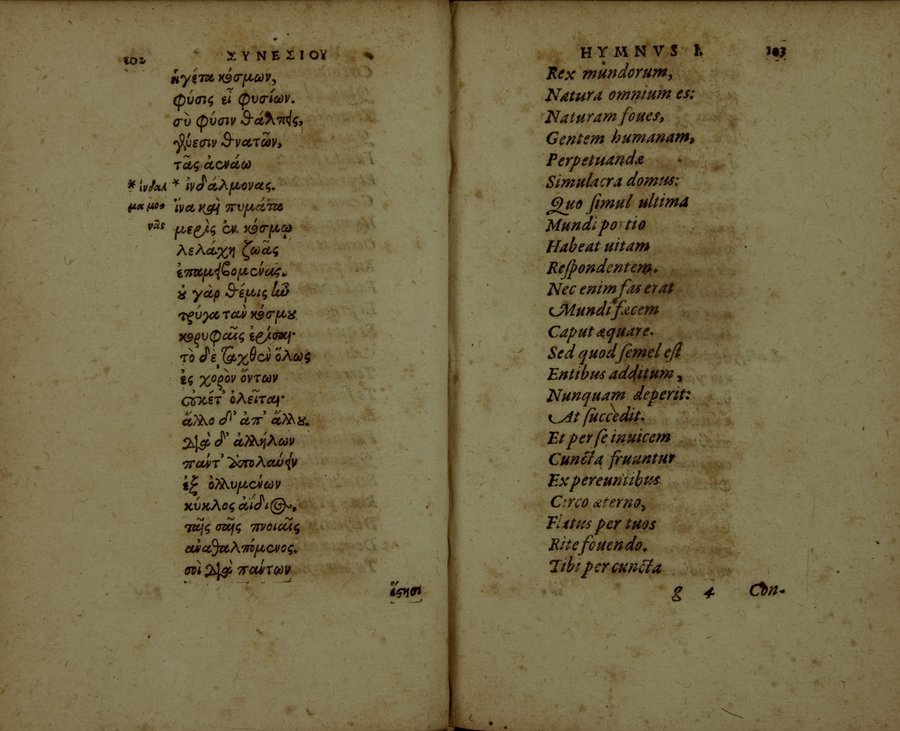 102 ΣΥΝΕΣΙΟΥ
ἁγέτα κόσμων,
φύσις εἶ φυσίων.
σὺ φύσιν θάλπεις,
γένεσιν θνατῶν,
τᾶς ἀενάω
* ἰνδαλ
μα μο-
νᾶς
* ἰνδάλμονας.
ἵνα καὶ πυμάτα
μερὶς ἐν κόσμῳ
λελάχη ζωᾶς
ἐπαμειβομένας.
οὐ γὰρ θέμις ἦν
τρύγα τὰν κόσμου
κορυφαῖς ἐρίσαι·
τὸ δὲ ταχθὲν ὅλως
ἐς χορὸν ὄντων
οὐκέτ' ὀλεῖται·
ἄλλο δ' ἀπ' ἄλλου.
διὰ δ' ἀλλήλων
πάντ' ἀπολαύειν
ἐξ ὀλλυμένων
κύκλος ἀΐδιος,
ταῖς σαῖς πνοιαῖς
ἀναθαλπόμενος.
σοὶ διὰ πάντων
ἵστησι
HYMNVS I. 103
Rex mundorum,
Natura omnium es:
Naturam foues,
Gentem humanam,
Perpetuandæ
Simulacra domus:
Quo simul ultima
Mundi portio
Habeat uitam
Respondentem.
Nec enim fas erat
Mundi fæcem
Caput æquare.
Sed quod semel est
Entibus additum,
Nunquam deperit:
At succedit.
Et per se inuicem
Cuncta fruuntur
Ex pereuntibus
Circo æterno,
Flatus per tuos
Rite fouendo.
Tibi per cuncta
g 4 Con-